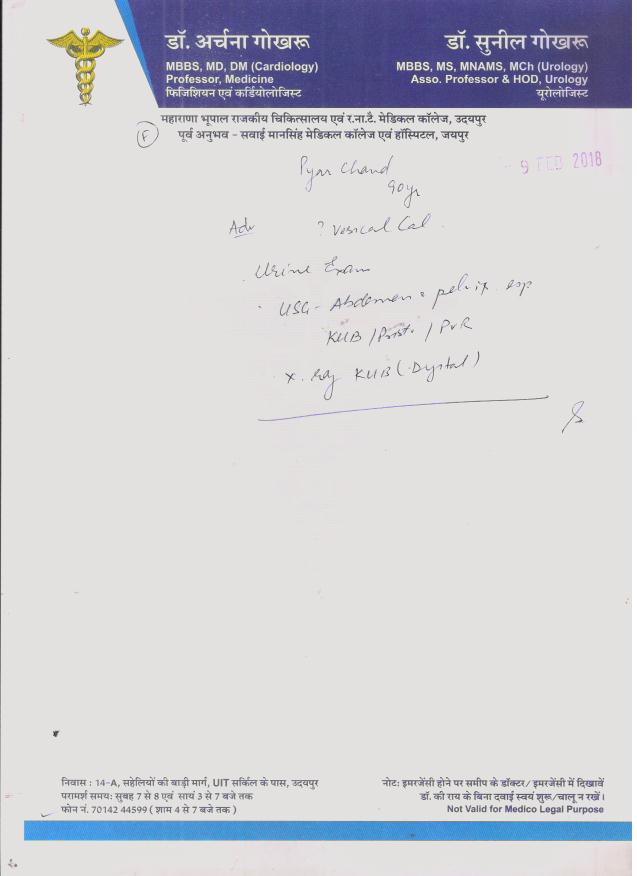 डॉ. अर्चना गोखरू
MBBS, MD, DM (Cardiology)
Professor, Medicine
फिजिशियन एवं कर्डियोलोजिस्ट
डॉ. सुनील गोखरू
MBBS, MS, MNAMS, MCh (Urology)
Asso. Professor & HOD, Urology
यूरोलोजिस्ट
महाराणा भूपाल राजकीय चिकित्सालय एवं र.ना.टै. मेडिकल कॉलेज, उदयपुर
पूर्व अनुभव - सवाई मानसिंह मेडिकल कॉलेज एवं हॉस्पिटल, जयपुर
F
9 FEB 2018
Pyar Chand
90yr
Adv ? Vesical Cal
Urine Exam
USG - Abdomen pelvix esp
KUB / Prost. / PVR
X. Ray KUB (Dygtal)
निवास : 14-A, सहेलियों की बाड़ी मार्ग, UIT सर्किल के पास, उदयपुर
परामर्श समय: सुबह 7 से 8 एवं सायं 3 से 7 बजे तक
फोन नं. 70142 44599 ( शाम 4 से 7 बजे तक )
नोट: इमरजेंसी होने पर समीप के डॉक्टर/ इमरजेंसी में दिखावें
डॉ. की राय के बिना दवाई स्वयं शुरू/चालू न रखें।
Not Valid for Medico Legal Purpose